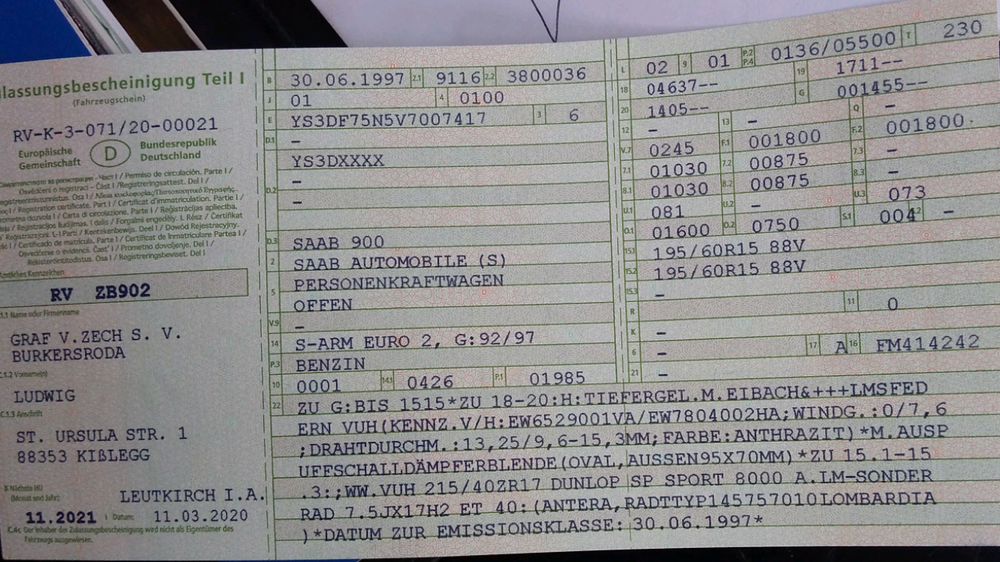 lassungsbescheinigung Teil I
(Fahrzeugschein)
RV-K-3-071/20-00021
Europäische Gemeinschaft
D
Bundesrepublik Deutschland
RV ZB902
GRAF V.ZECH S. V.
BURKERSRODA
LUDWIG
C.1.3 Anschrift
ST. URSULA STR. 1
88353 KIßLEGG
LEUTKIRCH I.A.
11.2021 Datum: 11.03.2020
B 30.06.1997 2.1 9116 2.2 3800036
J 01 4 0100
E YS3DF75N5V7007417 3 6
D.1 –
YS3DXXXX
D.2 –
–
D.3 SAAB 900
2 SAAB AUTOMOBILE (S)
5 PERSONENKRAFTWAGEN
OFFEN
V.9 –
14 S-ARM EURO 2, G:92/97
P.3 BENZIN
10 0001 14.1 0426 P.1 01985
L 02 9 01 P.2 P.4 0136/05500 T 230
18 04637-- 19 1711--
20 1405-- G 001455--
12 – 13 – Q –
V.7 0245 F.1 001800 F.2 001800
7.1 01030 7.2 00875 7.3 –
8.1 01030 8.2 00875 8.3 –
U.1 081 U.2 – U.3 073
O.1 01600 O.2 0750 S.1 004 –
15.1 195/60R15 88V
15.2 195/60R15 88V
15.3 –
R 11 0
K –
6 – 17 A 16 FM414242
21 –
22 ZU G:BIS 1515*ZU 18-20:H:TIEFERGEL.M.EIBACH&+++LMSFED
ERN VUH(KENNZ.V/H:EW6529001VA/EW7804002HA;WINDG.:0/7,6
;DRAHTDURCHM.:13,25/9,6-15,3MM;FARBE:ANTHRAZIT)*M.AUSP
UFFSCHALLDÄMPFERBLENDE(OVAL,AUSSEN95X70MM)*ZU 15.1-15
.3:;WW.VUH 215/40ZR17 DUNLOP SP SPORT 8000 A.LM-SONDER
RAD 7.5JX17H2 ET 40:(ANTERA,RADTTYP145757010LOMBARDIA
)*DATUM ZUR EMISSIONSKLASSE: 30.06.1997*